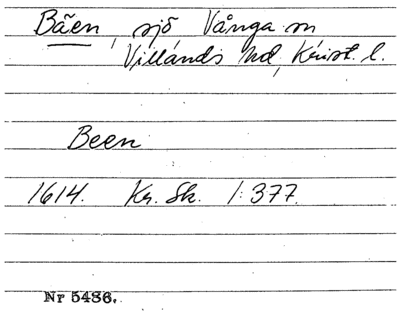 Bäen, sjö Vånga sn
Villands hd, Krist. l.
Been
1614. Kr. Sk. 1:377.
Nr 5436.